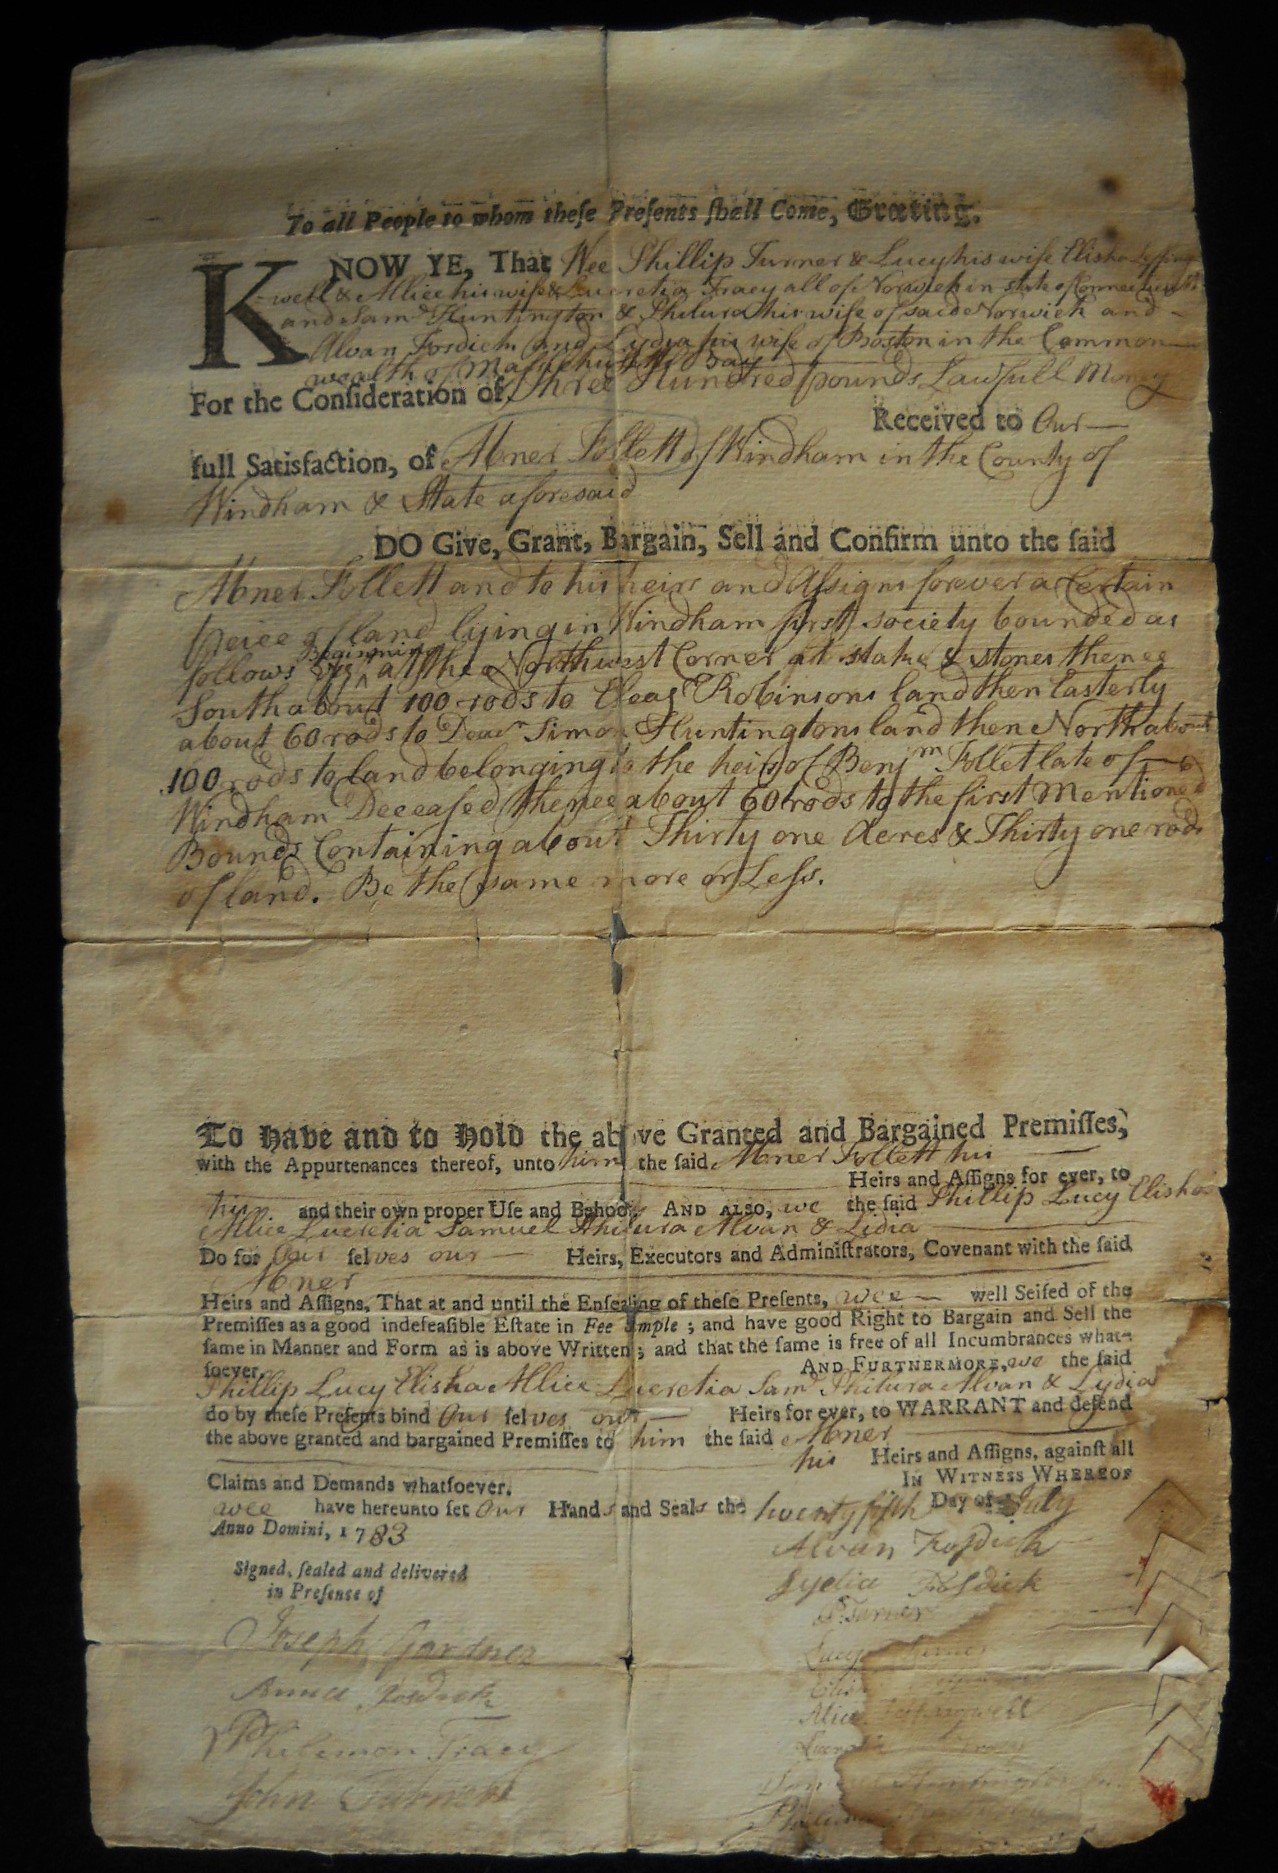 To all People to whom theſe Preſents ſhall Come, Greeting.
KNOW YE, That Wee Phillip Turner & Lucy his wife Elisha Leffing-
-well & Allice his wife & Lucretia Tracy all of Norwich in state of Connecticutt
and Sam.ˡ Huntington & Philura his wife of said Norwich and -
Alvan Fosdick and Lydia his wife of Boston in the Common-
wealth of Maſſachusetts Bay
For the Conſideration of Three Hundred pounds Lawfull Money
Received to Our
full Satisfaction, of Abner Follett of Windham in the County of
Windham & State aforesaid
DO Give, Grant, Bargain, Sell and Confirm unto the ſaid
Abner Follett and to his heirs and Aſsigns forever a Certain
peice of land lying in Windham first society bounded as
follows Beginning at the Northwest Corner at stake & stones thence
South about 100 rods to Eleaz.ʳ Robinsons land then Easterly
about 60 rods to Deac.ⁿ Simon Huntingtons land then North about
100 rods to land belonging to the heirs of Benjᵐ Follet late of
Windham Deceaſed thence about 60 rods to the first Mentioned
Bounds Containing about Thirty one Acres & Thirty one rods
of land. Be the same more or Leſs.
To have and to hold the above Granted and Bargained Premiſſes,
with the Appurtenances thereof, unto him the ſaid Abner Follett his
Heirs and Aſſigns for ever, to
his and their own proper Uſe and Behoof, AND ALSO, we the ſaid Phillip Lucy Elisha
Allice Lucretia Samuel Philura Alvan & Lidia
Do for Our ſelves our Heirs, Executors and Adminiſtrators, Covenant with the ſaid
Abner
Heirs and Aſſigns, That at and until the Enſealing of theſe Preſents, wee well Seiſed of the
Premiſſes as a good indefeaſible Eſtate in Fee Simple ; and have good Right to Bargain and Sell the
ſame in Manner and Form as is above Written ; and that the ſame is free of all Incumbrances what-
ſoever. AND FURTNERMORE, we the ſaid
Phillip Lucy Elisha Allice Lucretia Sam.ˡ Philura Alvan & Lydia
do by theſe Preſents bind Our ſelves our Heirs for ever, to WARRANT and defend
the above granted and bargained Premiſſes to him the ſaid Abner
his Heirs and Aſſigns, againſt all
Claims and Demands whatſoever. IN WITNESS WHEREOF
wee have hereunto ſet Our Hands and Seals the twenty fifth Day of July
Anno Domini, 1783
Alvan Fosdick
Signed, ſealed and delivered
in Preſense of
Lydia Fosdick
P. Turner
Joseph Gardner
Lucy Turner
Anna Fosdick
Alice Leffingwell
Philemon Tracy
Lucretia Tracy
John Turner
Huntington